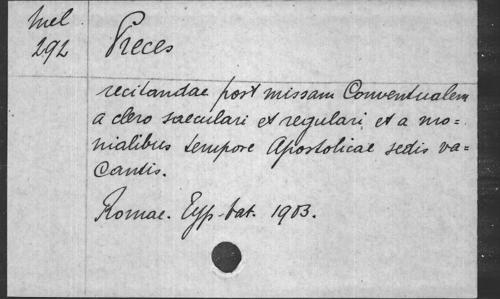 Mel
292
Preces
recitandae post missam Conventualem
a clero saeculari et regulari et a mo=
nialibus tempore Apostolicae sedis va=
cantis.
Romae. Typ. Vat. 1903.